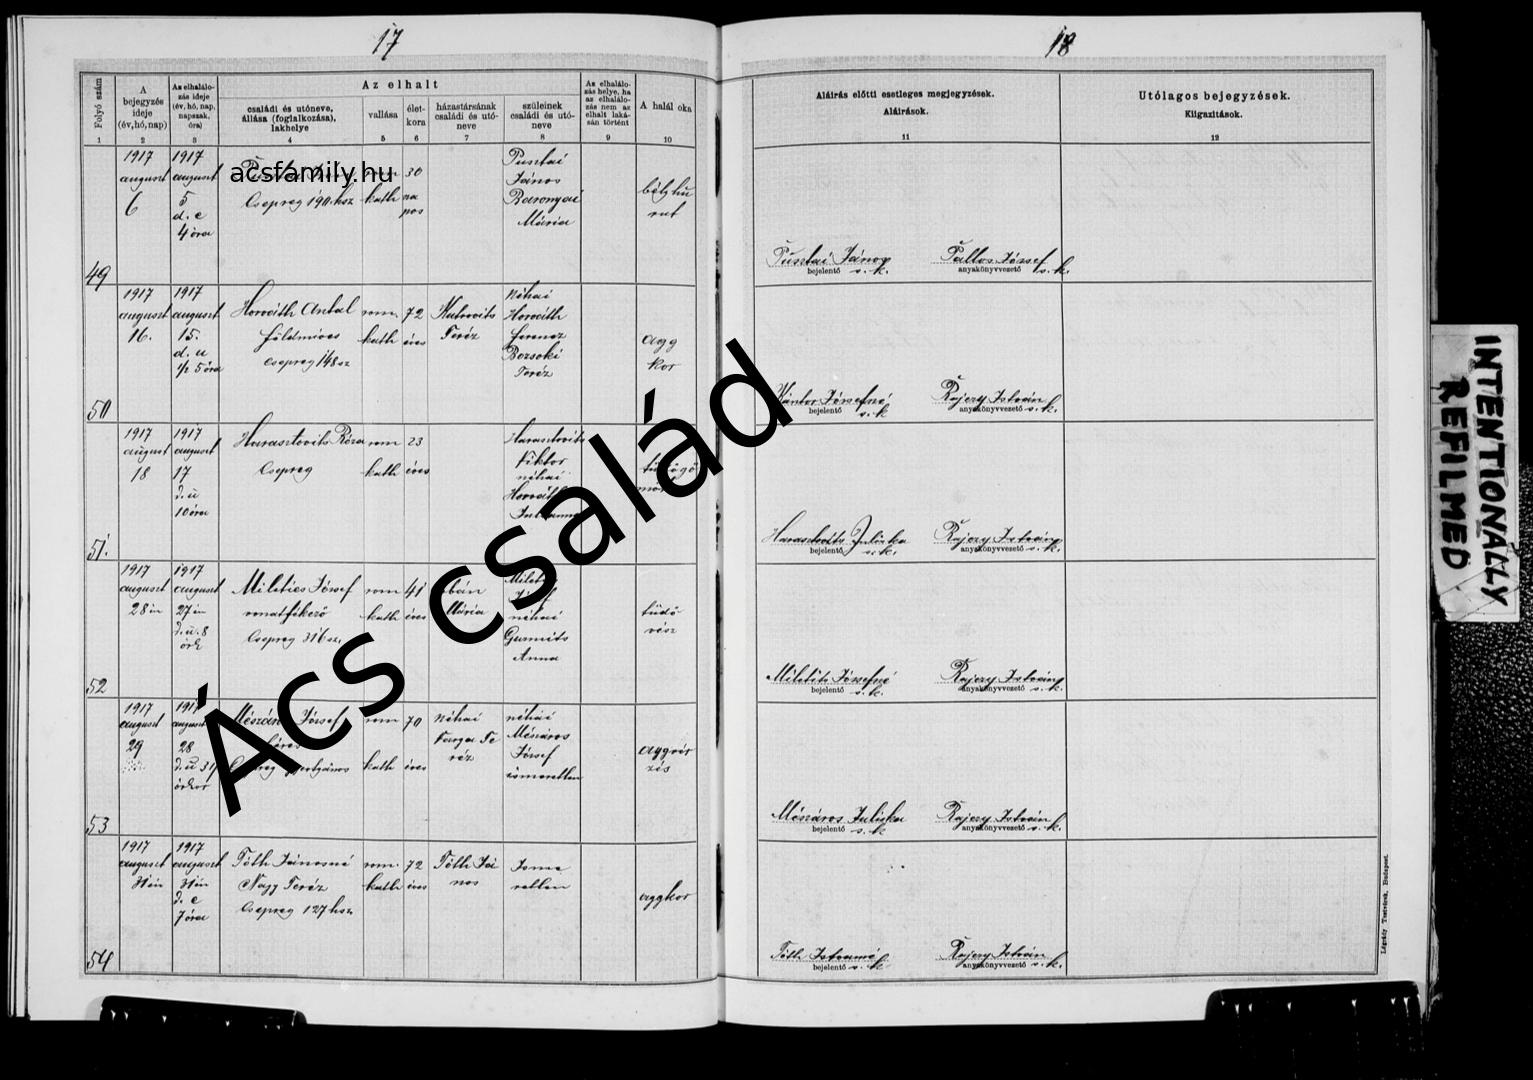 17
Folyó szám
A bejegyzés ideje (év, hó, nap)
Az elhalálozás ideje (év, hó, nap, napszak, óra)
Az elhalt
családi és utóneve, állása (foglalkozása), lakhelye
vallása
életkora
házastársának családi és utóneve
szüleinek családi és utóneve
Az elhalálozás helye, ha az elhalálozás nem az elhalt lakásán történt
A halál oka
1 2 3 4 5 6 7 8 9 10
49
1917 august 6
1917 august 5 d. e 4 óra
Csepreg 190. hsz
rom kath
30 napos
Pusztai János
Mária
bélhurut
50
1917 august 16.
1917 august 15. d. u ½ 5 óra
Horváth Antal
földmives
Csepreg 148 sz
rom. kath
72 éves
Teréz
néhai Horváth Ferencz
Bozsoki Teréz
agg kor
51.
1917 august 18
1917 august 17 d. u 10 óra
Harasztovits Róza
Csepreg
rom kath
23 éves
Harasztovits Viktor
néhai Horváth
52
1917 august 28 án
1917 august 27 én d. u. 8 órk
Militics József
vonatfékező
Csepreg 316 sz.
rom kath
41 éves
Mária
néhai
Anna
tüdő vész
53
1917 august 29
1917 august 28
József
rom kath
70 éves
néhai Varga Teréz
néhai Mészáros József
ismeretlen
54
1917 august 31 én
1917 august 31 én d. e 7 óra
Tóth Jánosné
Nagy Teréz
Csepreg 127 hsz
rom. kath
72 éves
Tóth János
Isme retlen
aggkor
18
Aláírás előtti esetleges megjegyzések.
Aláírások.
11
Utólagos bejegyzések.
Kiigazítások.
12
Pusztai János s. k.
bejelentő
Pallos József s. k.
anyakönyvvezető
Kántor Józsefné s. k
bejelentő
Rajczy István s. k.
anyakönyvvezető
Harasztovits Juliska s. k.
bejelentő
Rajczy István s. k.
anyakönyvvezető
Militits Józsefné s. k.
bejelentő
Rajczy István s. k.
anyakönyvvezető
Mészáros Juliska s. k
bejelentő
Rajczy István s. k.
anyakönyvvezető
Tóth Istvánné s. k
bejelentő
Rajczy István s. k.
anyakönyvvezető
Légrády Testvérek, Budapest.
INTENTIONALLY
REFILMED
acsfamily.hu
Ács család